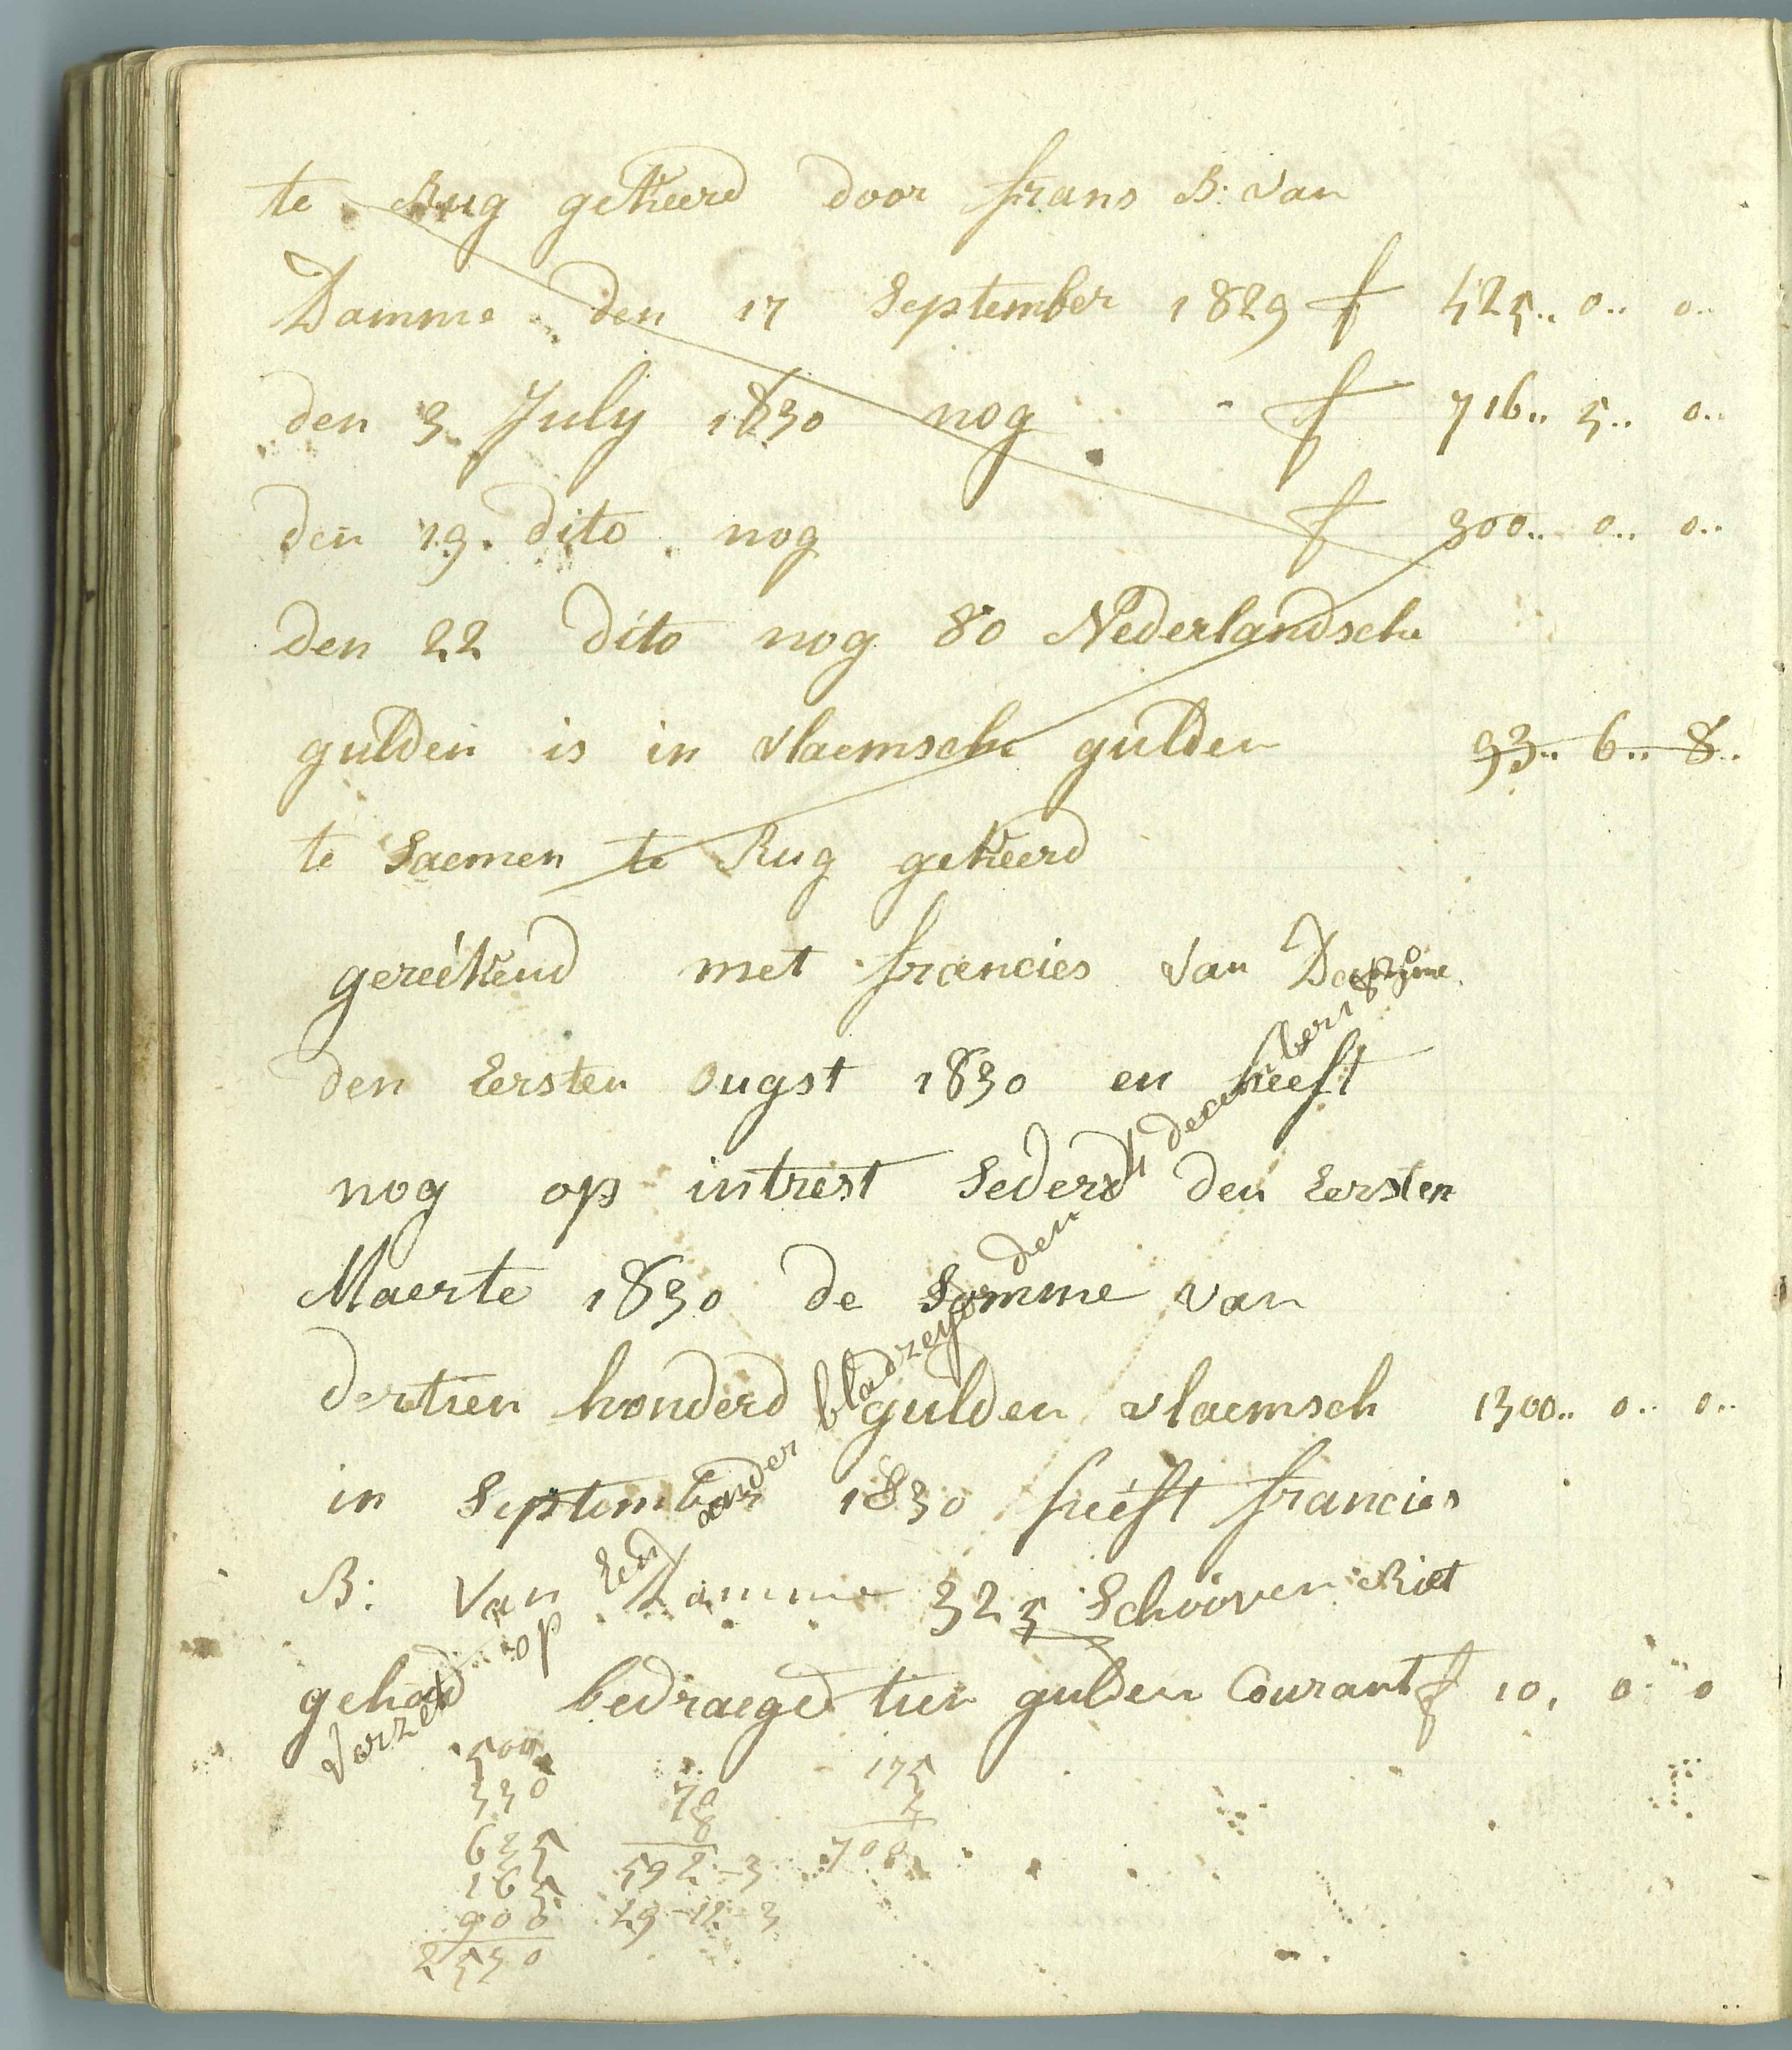 te Rug gekeerd door frans B: van
Damme den 17 September 1829 f 425.. 0.. 0..
den 3 July 1830 nog f 716.. 5.. 0..
den 19 dito nog f 300.. 0.. 0..
den 22 dito nog 80 Nederlandsche
gulden is in vlaemsche gulden 93.. 6.. 8..
te Saemen te Rug gekeerd
gereekend met francies van Damme
den Eersten Ougst 1830 en heeft
nog op intrest Sederd den Eersten
Maerte 1830 de Somme van
dertien honderd gulden vlaemsch 1300.. 0.. 0..
in September 1830 heeft francies
B: Van Damme 325 Schooven Riet
gehad bedraeged tien gulden Courant f 10, 0 0
Verzet op Een ander bladzeyde den 4 december
500
330
635
165
900
2530
592-3
29-12-3
175
4
700